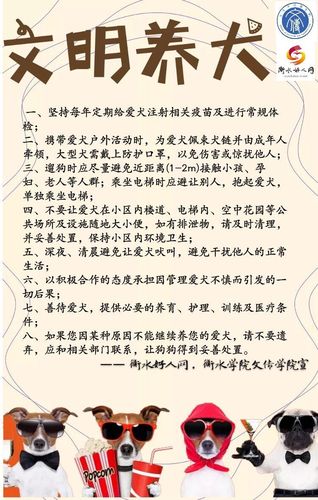 文明养犬
衡水好人网
一、坚持每年定期给爱犬注射相关疫苗及进行常规体
检；
二、携带爱犬户外活动时，为爱犬佩束犬链并由成年人
牵领，大型犬需戴上防护口罩，以免伤害或惊扰他人；
三、遛狗时应尽量避免近距离(1-2m)接触小孩、孕
妇、老人等人群；乘坐电梯时应避让别人，抱起爱犬，
单独乘坐电梯；
四、不要让爱犬在小区内楼道、电梯内、空中花园等公
共场所及设施随地大小便，如有排泄物，请及时清理，
并妥善处置，保持小区内环境卫生；
五、深夜、清晨避免让爱犬吠叫，避免干扰他人的正常
生活；
六、以积极合作的态度承担因管理爱犬不慎而引发的一
切后果；
七、善待爱犬，提供必要的养育、护理、训练及医疗条
件；
八、如果您因某种原因不能继续养您的爱犬，请不要遗
弃，应和相关部门联系，让狗狗得到妥善处置。
—— 衡水好人网，衡水学院文传学院宣
Popcorn